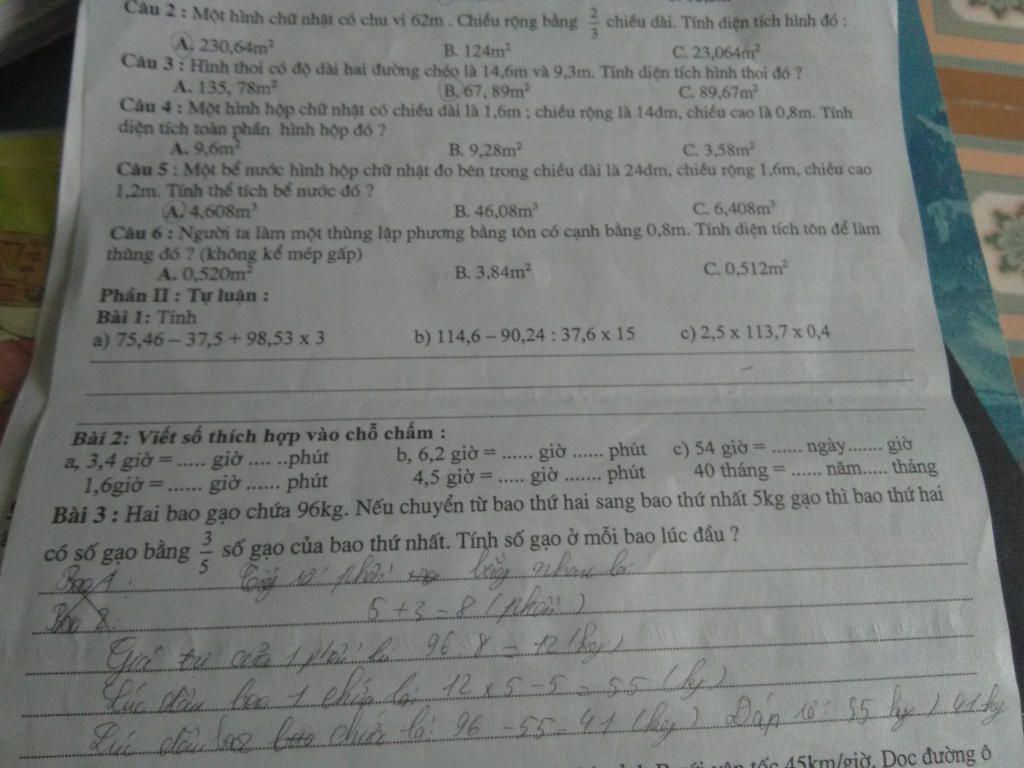 Câu 2 : Một hình chữ nhật có chu vi 62m . Chiều rộng bằng 2/3 chiều dài. Tính diện tích hình đó :
A. 230,64m² B. 124m² C. 23,064m²
Câu 3 : Hình thoi có độ dài hai đường chéo là 14,6m và 9,3m. Tính diện tích hình thoi đó ?
A. 135, 78m² B. 67, 89m² C. 89,67m²
Câu 4 : Một hình hộp chữ nhật có chiều dài là 1,6m ; chiều rộng là 14dm, chiều cao là 0,8m. Tính
diện tích toàn phần hình hộp đó ?
A. 9,6m² B. 9,28m² C. 3,58m²
Câu 5 : Một bể nước hình hộp chữ nhật đo bên trong chiều dài là 24dm, chiều rộng 1,6m, chiều cao
1,2m. Tính thể tích bể nước đó ?
A. 4,608m³ B. 46,08m³ C. 6,408m³
Câu 6 : Người ta làm một thùng lập phương bằng tôn có cạnh bằng 0,8m. Tính diện tích tôn để làm
thùng đó ? (không kể mép gấp)
A. 0,520m² B. 3,84m² C. 0,512m²
Phần II : Tự luận :
Bài 1: Tính
a) 75,46 – 37,5 + 98,53 x 3 b) 114,6 – 90,24 : 37,6 x 15 c) 2,5 x 113,7 x 0,4
Bài 2: Viết số thích hợp vào chỗ chấm :
a, 3,4 giờ = ..... giờ .... ..phút b, 6,2 giờ = ...... giờ ...... phút c) 54 giờ = ...... ngày....... giờ
1,6giờ = ...... giờ ...... phút 4,5 giờ = ...... giờ ....... phút 40 tháng = ...... năm..... tháng
Bài 3 : Hai bao gạo chứa 96kg. Nếu chuyển từ bao thứ hai sang bao thứ nhất 5kg gạo thì bao thứ hai
có số gạo bằng 3/5 số gạo của bao thứ nhất. Tính số gạo ở mỗi bao lúc đầu ?
Bao 1 : Tổng số phần bằng nhau là:
Bao 2 : 5 + 3 = 8 ( phần )
Giá trị của 1 phần là: 96 : 8 = 12 (kg)
Lúc đầu bao 1 chứa là: 12 x 5 - 5 = 55 (kg)
Lúc đầu chứa là: 96 - 55 = 41 (kg) Đáp số: 55 kg 41 kg
tốc 45km/giờ. Dọc đường ô